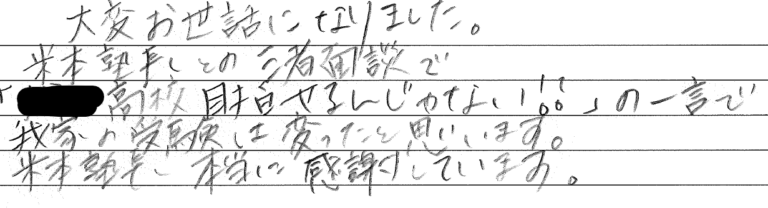 大変お世話になりました。
米本塾長との三者面談で
「高校 目指せるんじゃない!!」の一言で
我家の受験は変ったと思います。
米本塾長、本当に感謝しています。